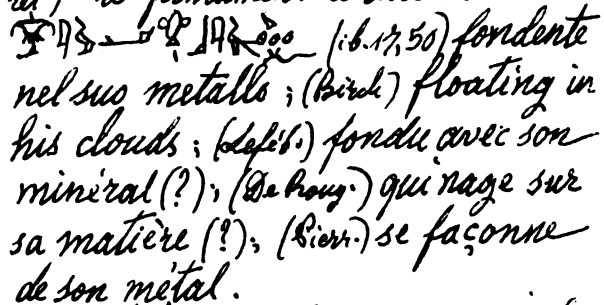 (ib. 17, 50) fondente
nel suo metallo ; (Birch) floating in
his clouds ; (Leféb.) fondu avec son
minéral (?) ; (De Roug.) qui nage sur
sa matière (?) ; (Pierr.) se façonne
de son métal.